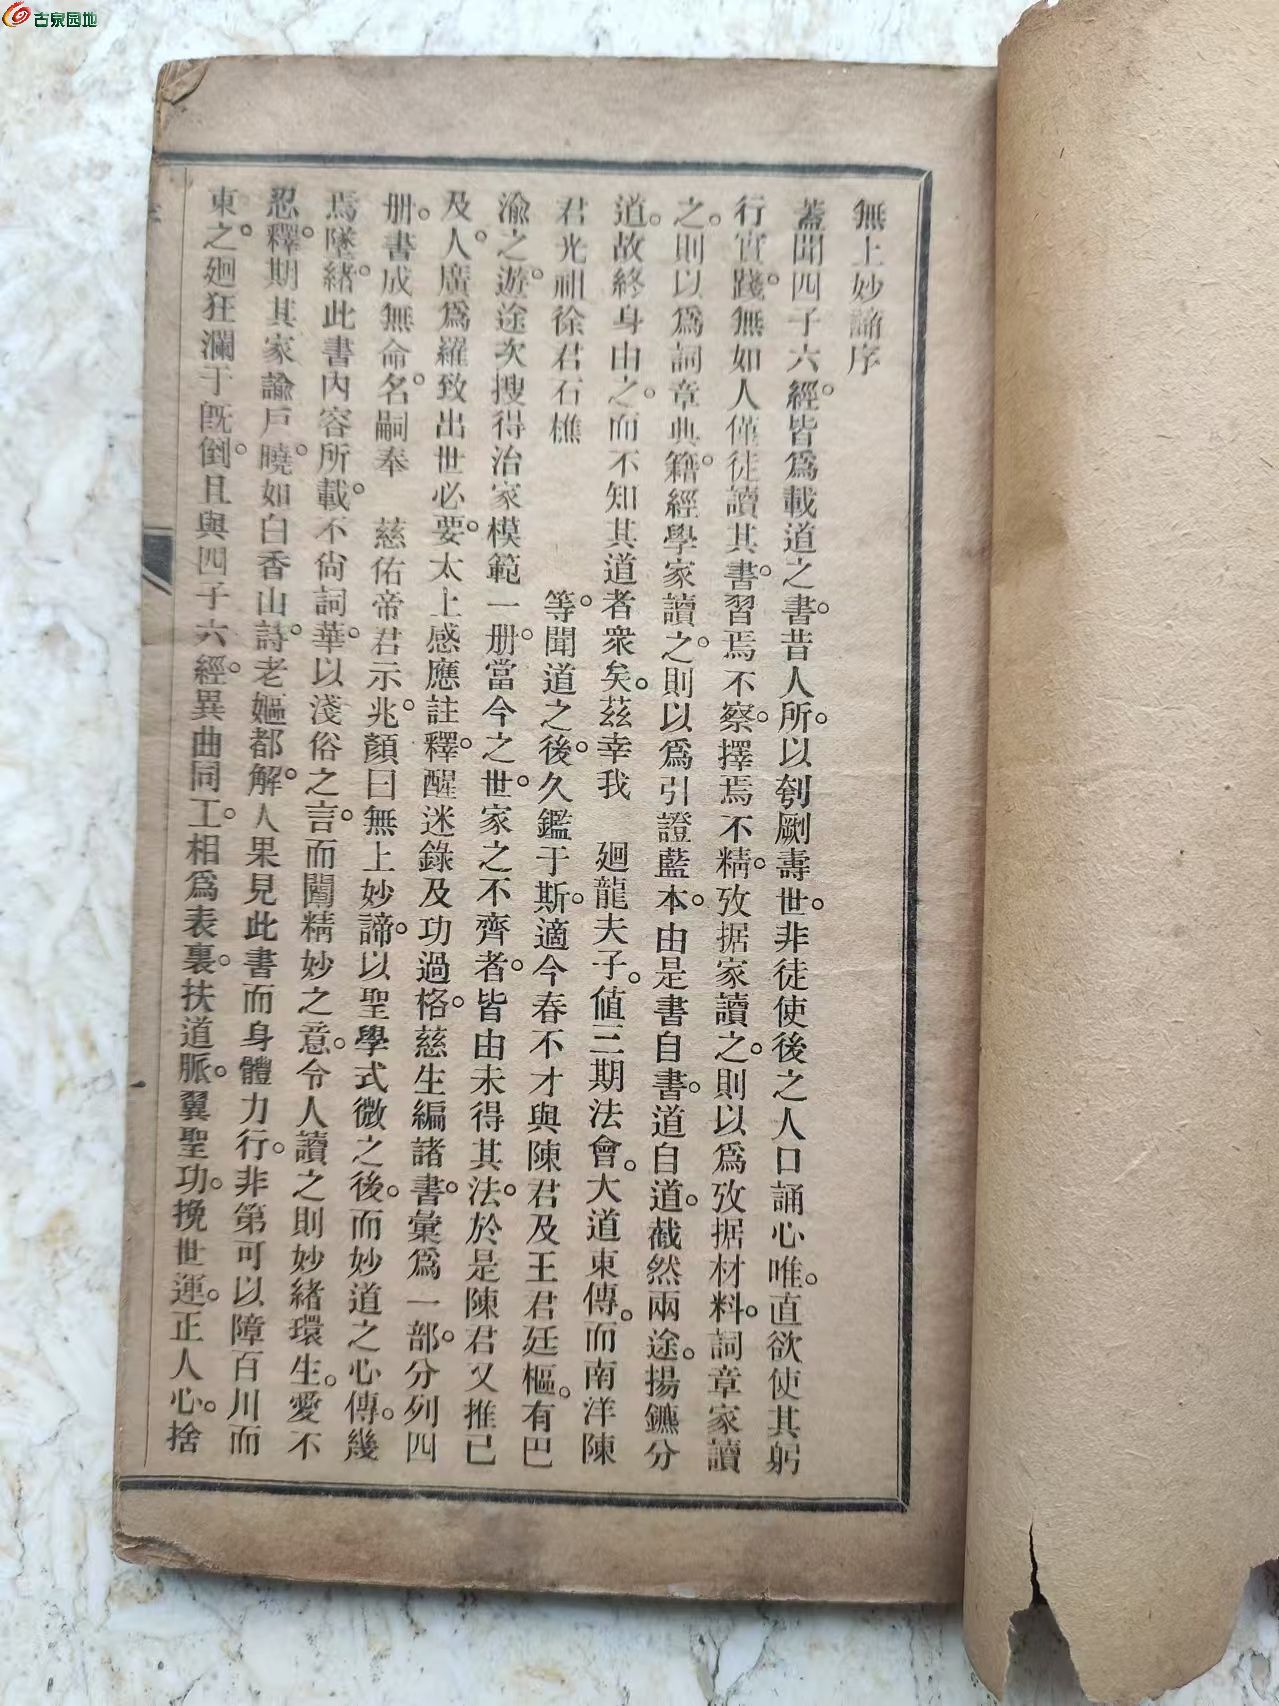 古泉园地
無上妙諦序
蓋聞四子六經。皆爲載道之書。昔人所。以刳劂壽世。非徒使後之人口誦心唯。直欲使其躬
行實踐。無如人僅徒讀其書。習焉不察。擇焉不精。攷据家讀之。則以爲攷据材料。詞章家讀
之。則以爲詞章典籍。經學家讀之。則以爲引證藍本。由是書自書。道自道。截然兩途。揚鑣分
道。故終身由之。而不知其道者衆矣。茲幸我　廻龍夫子。値三期法會。大道東傳。而南洋陳
君光祖徐君石樵　　　等。聞道之後。久鑑于斯。適今春不才與陳君及王君廷樞。有巴
渝之遊。途次搜得治家模範一册。當今之世。家之不齊者。皆由未得其法。於是陳君又推已
及人。廣爲羅致出世必要。太上感應註釋。醒迷錄及功過格。慈生編諸書。彙爲一部。分列四
册。書成無命名。嗣奉　慈佑帝君示兆。顏曰無上妙諦。以聖學式微之後。而妙道之心傳。幾
焉墜緖。此書內容所載。不尙詞華。以淺俗之言。而闡精妙之意。令人讀之則妙緖環生。愛不
忍釋。期其家諭戶曉。如白香山詩。老嫗都解。人果見此書而身體力行。非第可以障百川而
東之。廻狂瀾于旣倒。且與四子六經。異曲同工。相爲表裏。扶道脈。翼聖功。挽世運。正人心。捨